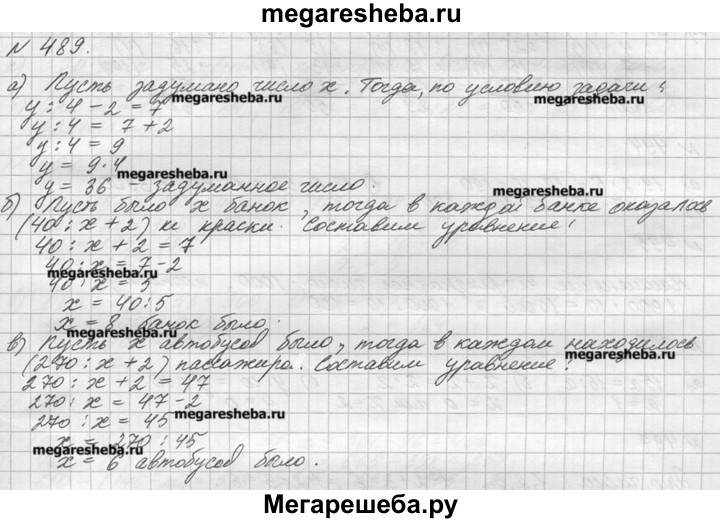 megaresheba.ru
N 489.
а) Пусть задумано число x. Тогда, по условию задачи:
megaresheba.ru
megaresheba.ru
y : 4 - 2 = 7
y : 4 = 7 + 2
y : 4 = 9
y = 9·4
megaresheba.ru
y = 36 - задуманное число.
б) Пусть было x банок, тогда в каждой банке оказалось
(40 : x + 2) кг краски. Составим уравнение:
megaresheba.ru
40 : x + 2 = 7
40 : x = 7 - 2
megaresheba.ru
40 : x = 5
x = 40 : 5
x = 8 банок было.
в) Пусть x автобусов было, тогда в каждом находилось
megaresheba.ru
(270 : x + 2) пассажира. Составим уравнение:
270 : x + 2 = 47
270 : x = 47 - 2
megaresheba.ru
270 : x = 45
x = 270 : 45
megaresheba.ru
x = 6 автобусов было.
Мегарешеба.ру